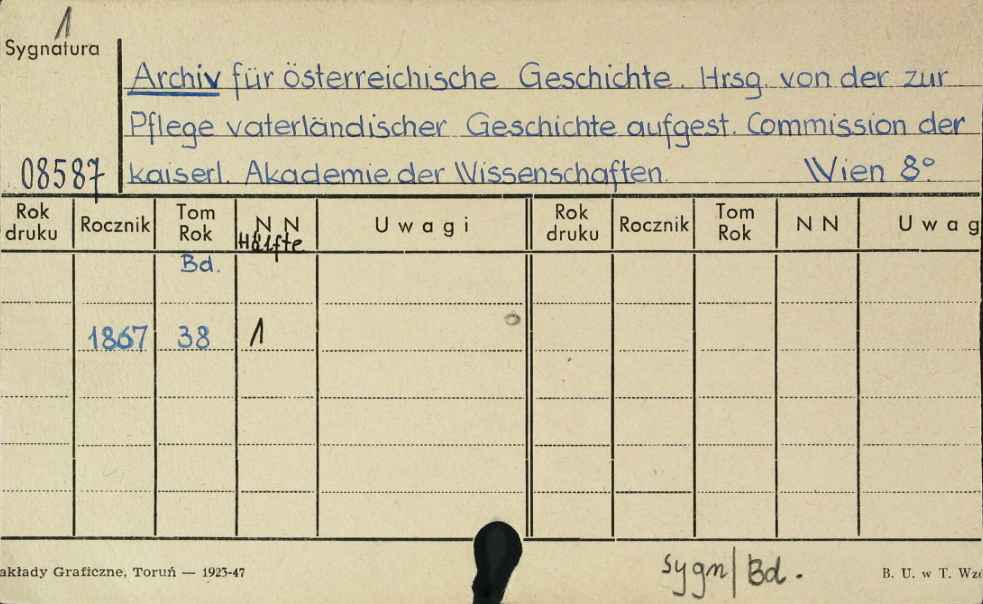 1
Sygnatura
Archiv für österreichische Geschichte. Hrsg. von der zur
Pflege vaterländischer Geschichte aufgest. Commission der
08587 kaiserl. Akademie der Wissenschaften. Wien 8°
Rok druku Rocznik Tom Rok NN Hälfte Uwagi Rok druku Rocznik Tom Rok NN Uwag
Bd.
1867 38 1
sygn/Bd.
akłady Graficzne, Toruń — 1923-47 B. U. w T. Wzó